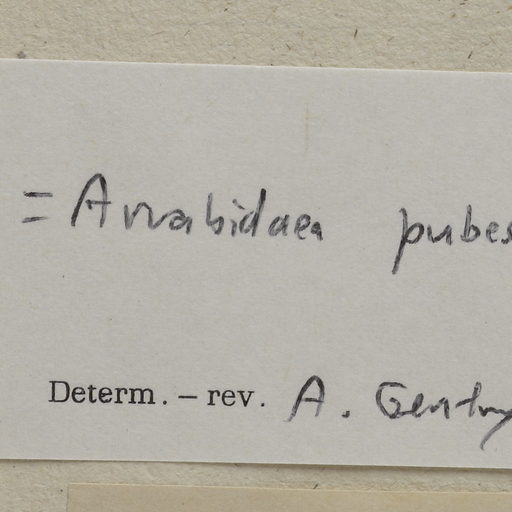 = Arrabidaea pubes
Determ. – rev. A. Gentry